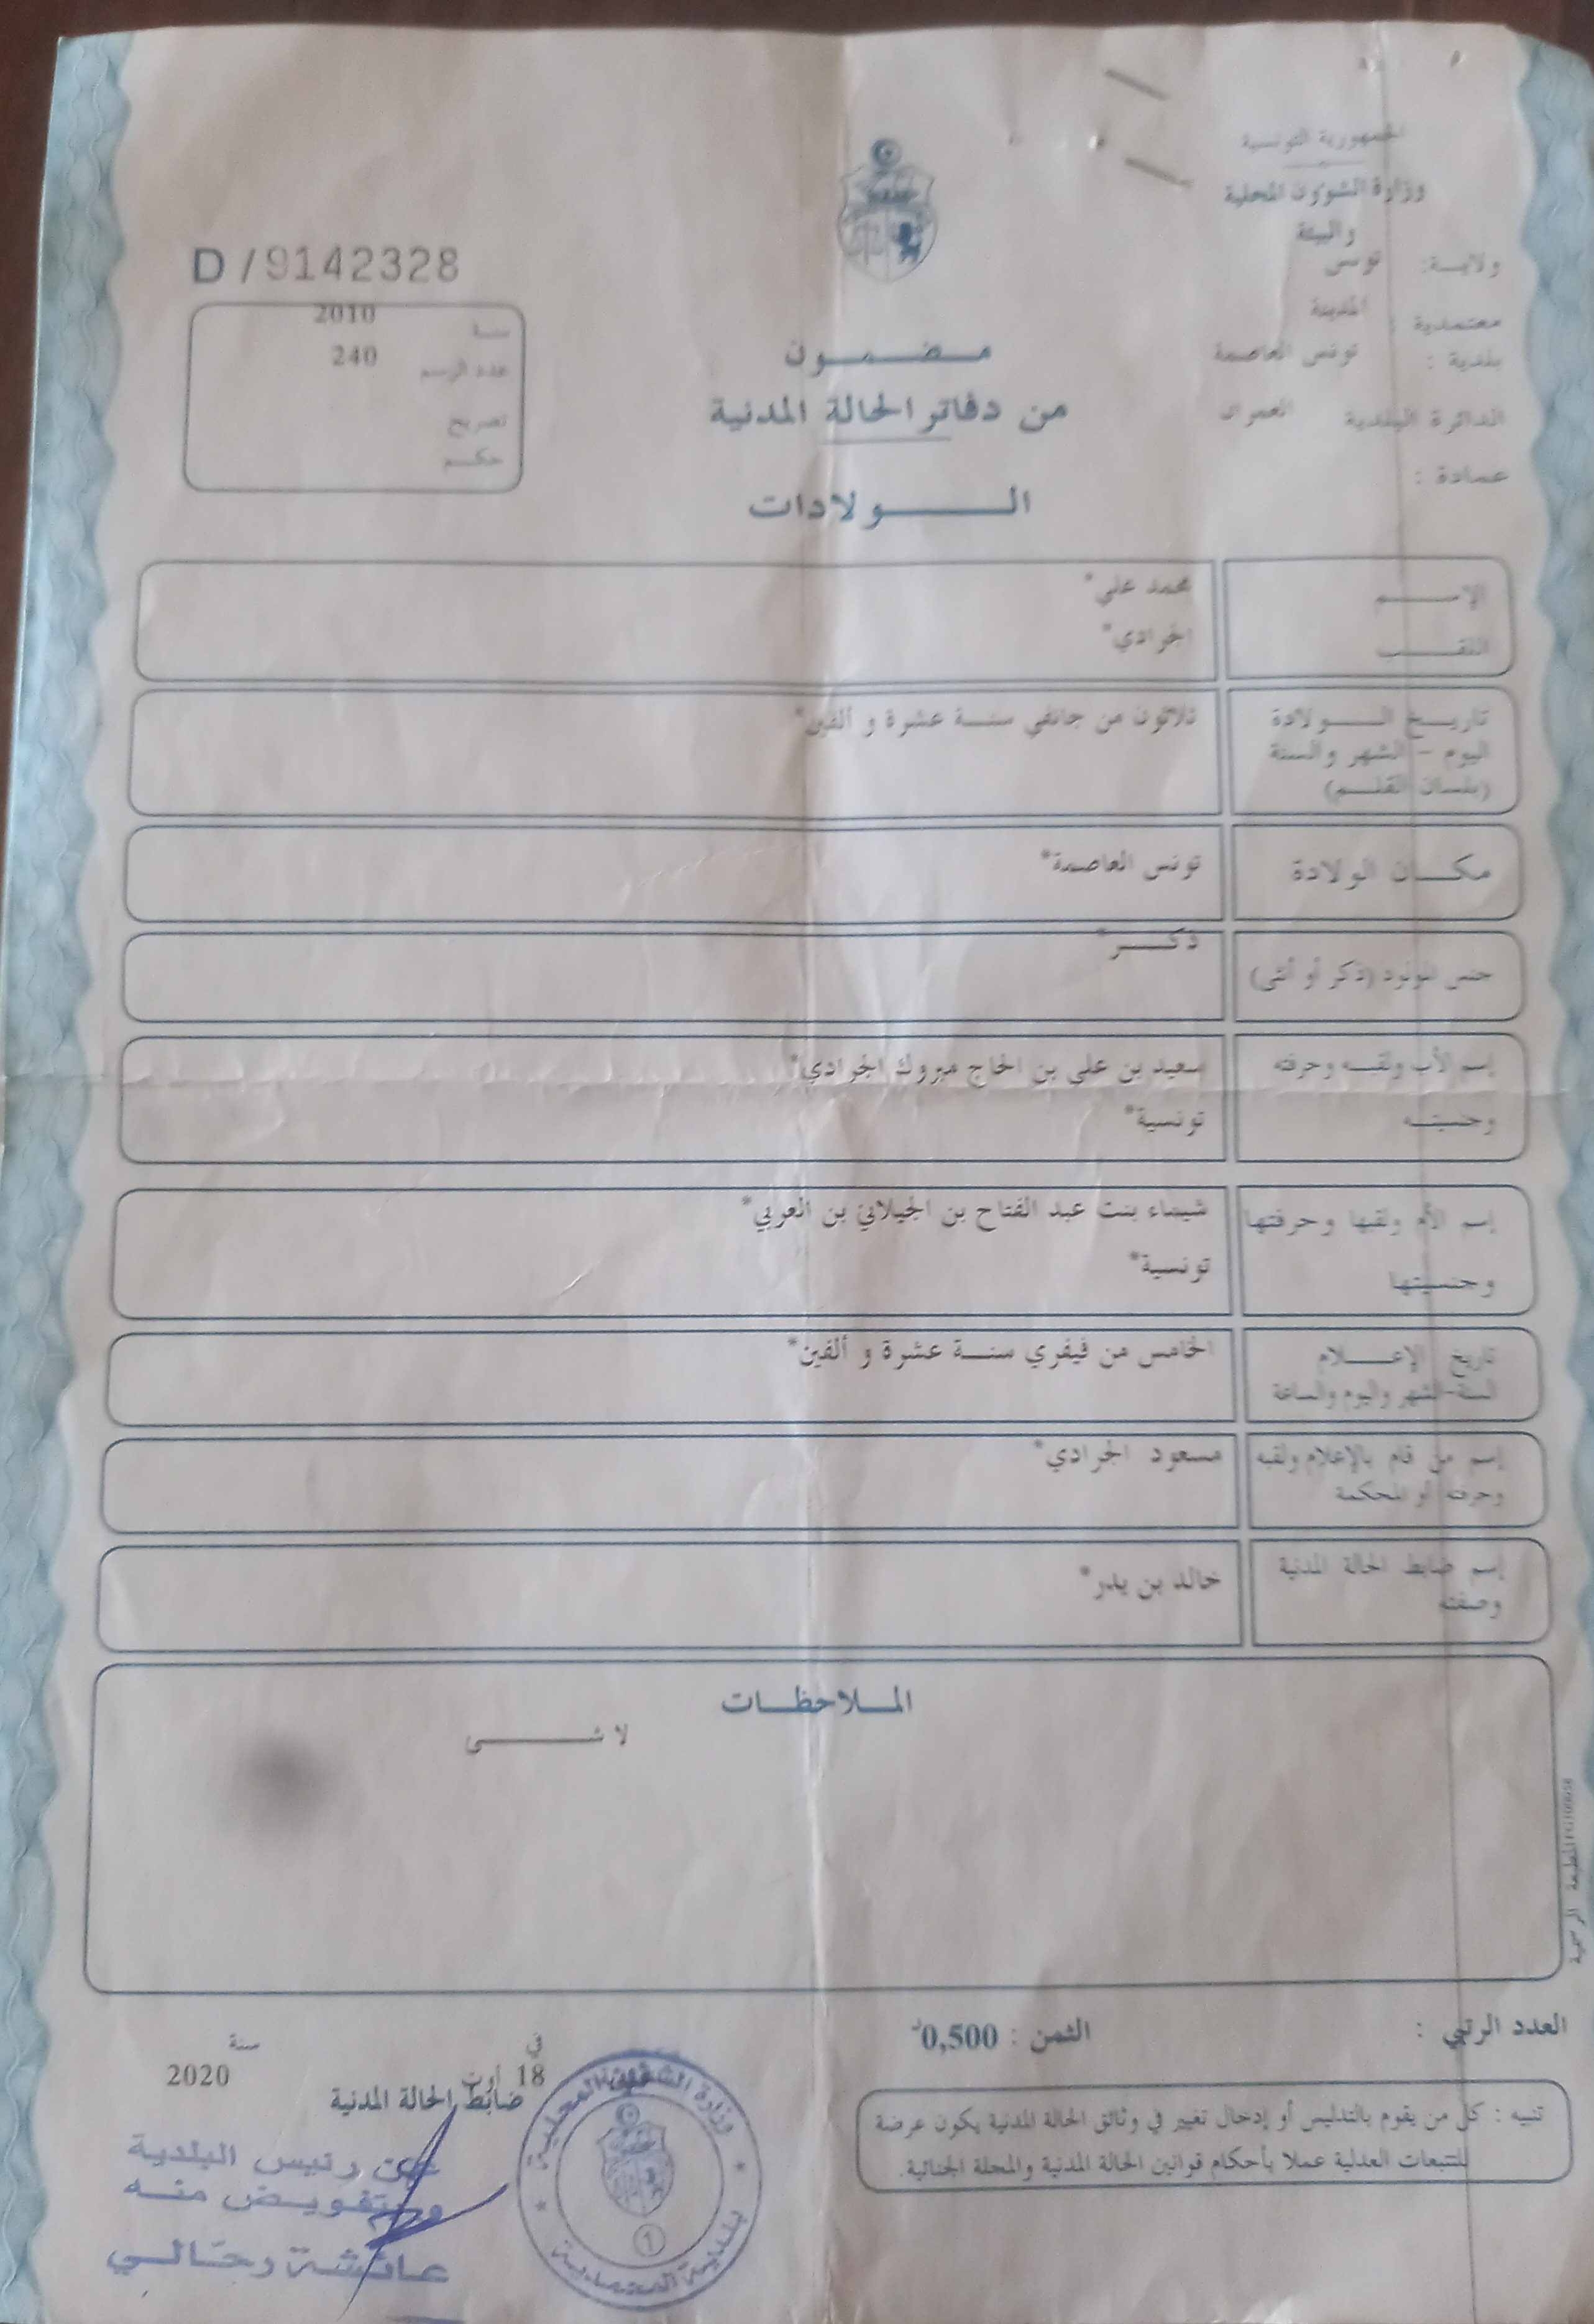 الجمهورية التونسية
وزارة الشؤون المحلية
والبيئة
ولايـة: تونس
معتمدية : المدينة
بلدية : تونس العاصمة
الدائرة البلدية العمران
عمادة :
D / 9142328
سنـة 2010
عدد الرسم 240
تصريح
حكـم
مـضـمـون
من دفاتر الحالة المدنية
الـولادات
الإسـم محمد علي*
اللقـب الجرادي*
تاريـخ الـولادة ثلاثون من جانفي سنـة عشرة و ألفين*
اليوم - الشهر والسنة
(بلسان القلـم)
مكـان الولادة تونس العاصمة*
جنس المولود (ذكر أو أنثى) ذكـر*
إسم الأب ولقبـه وحرفته سعيد بن علي بن الحاج مبروك الجرادي*
وجنسيتـه تونسية*
إسم الأم ولقبها وحرفتها شيماء بنت عبد الفتاح بن الجيلاني بن العربي*
وجنسيتها تونسية*
تاريخ الإعـلام الخامس من فيفري سنـة عشرة و ألفين*
السنة-الشهر واليوم والساعة
إسم من قام بالإعلام ولقبه مسعود الجرادي*
وحرفته أو المحكمة
إسم ضابط الحالة المدنية خالد بن يدر*
وصفته
المـلاحظـات
لا شـى
المطبعة الرسمية
العدد الرتبي :
الثمن : 0,500د
تنبيه : كل من يقوم بالتدليس أو إدخال تغيير في وثائق الحالة المدنية يكون عرضة
للتتبعات العدلية عملا بأحكام قوانين الحالة المدنية والمجلة الجنائية.
في 18 أوت سنة 2020
ضابط الحالة المدنية
عن رئيس البلدية
وبتفويـض منـه
عائشة رحّالـي
وزارة الشؤون المحلية
بلدية المحمدية
1